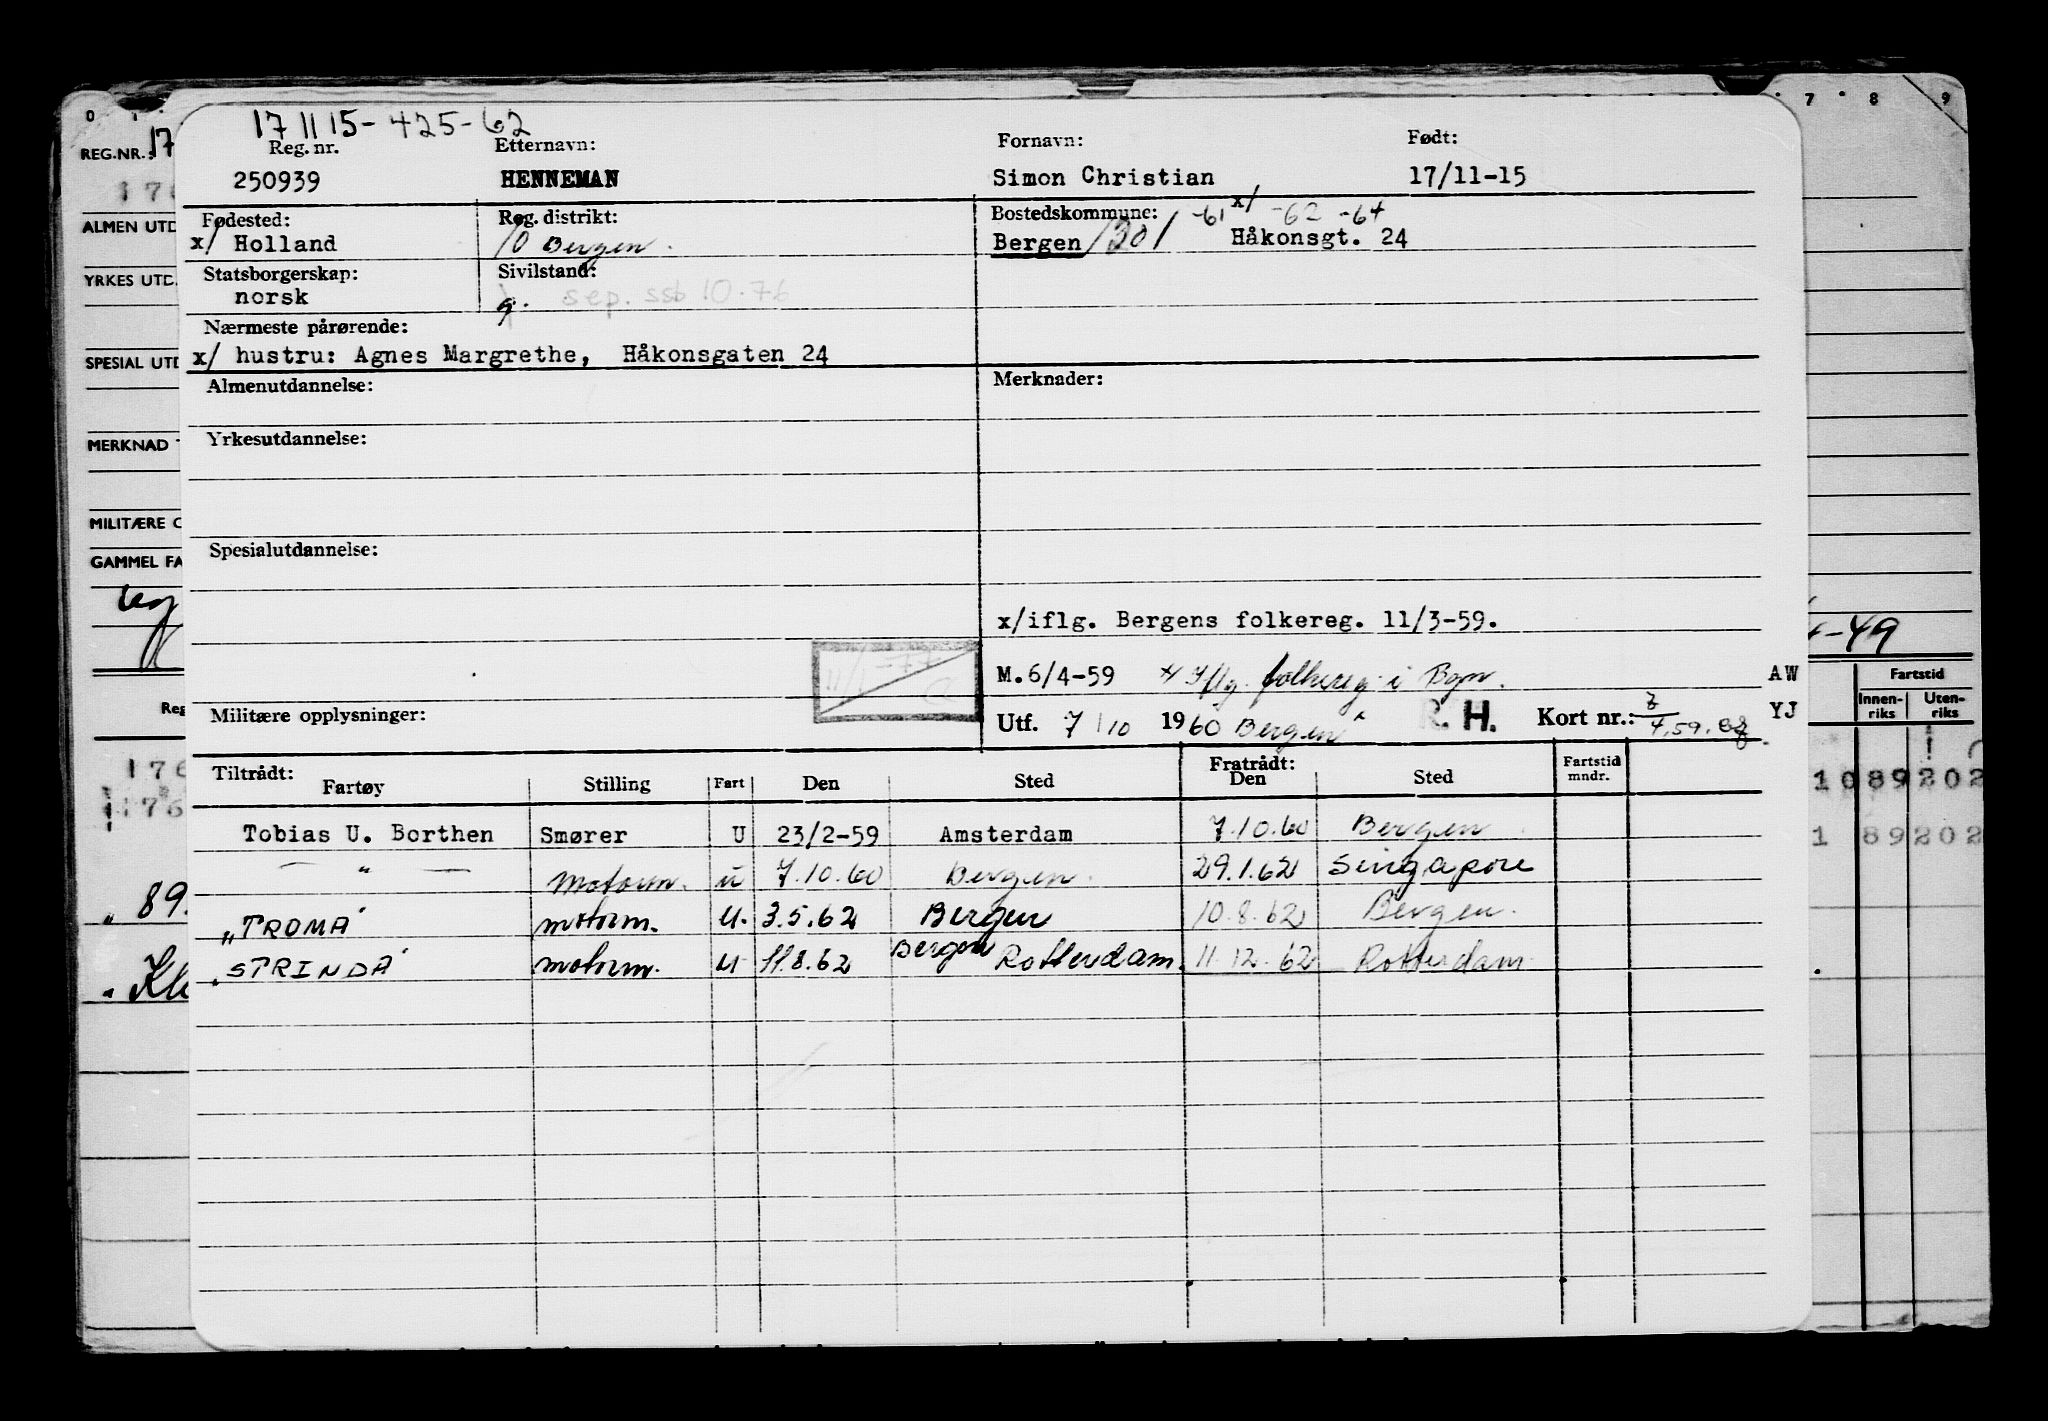 0 1 7 8 9
17 11 15-425-62
REG.NR.: 17
Reg. nr. Etternavn: Fornavn: Født:
250939 HENNEMAN Simon Christian 17/11-15
ALMEN UTD
Fødested: Reg. distrikt: Bostedskommune: -61 x/ -62 -64
x/ Holland 10 Bergen. Bergen /301 Håkonsgt. 24
YRKES UTD.
Statsborgerskap: Sivilstand:
norsk g. sep. ssb 10.76
Nærmeste pårørende:
SPESIAL UTD
x/ hustru: Agnes Margrethe, Håkonsgaten 24
Almenutdannelse: Merknader:
MERKNAD
Yrkesutdannelse:
MILITÆRE
Spesialutdannelse:
GAMMEL FA
x/iflg. Bergens folkereg. 11/3-59.
-49
M.6/4-59 x/ Iflg. folkereg. i Bgn. AW
Militære opplysninger: Utf. 7/10 1960 Bergen R. H. Kort nr.: YJ
Reg Fartstid
Innen-riks Uten-riks
Tiltrådt: Fratrådt:
Fartøy Stilling Fart Den Sted Den Sted Fartstid mndr.
176 1089202
Tobias U. Borthen Smører U 23/2-59 Amsterdam 7.10.60 Bergen
176 1 89202
— " — Motorm. u 7.10.60 Bergen. 29.1.62 Singapore
89.
"TROMÅ" motorm. u. 3.5.62 Bergen 10.8.62 Bergen.
"STRINDA" motorm. u 11.8.62 Bergen Rotterdam. 11.12.62 Rotterdam